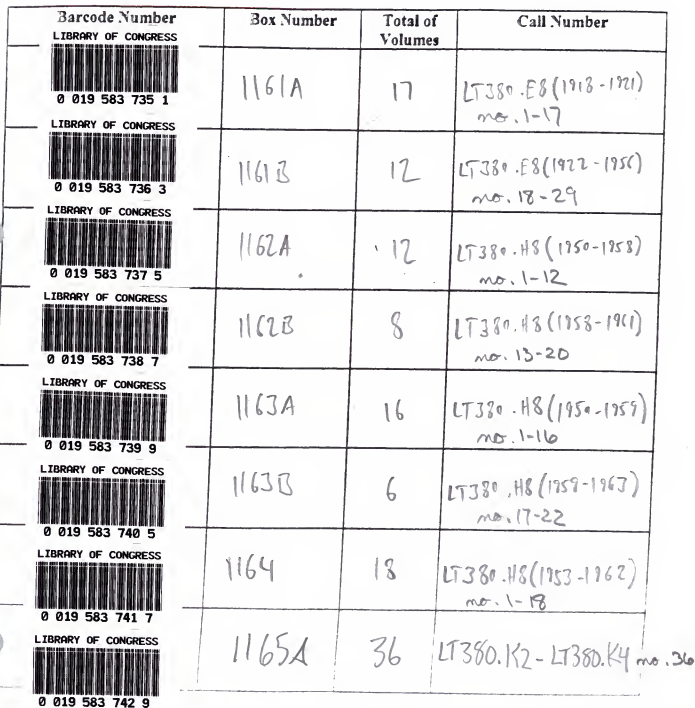 Barcode Number Box Number Total of Volumes Call Number
LIBRARY OF CONGRESS
0 019 583 735 1
1161A 17 LT380.E8(1918-1921)
no. 1-17
LIBRARY OF CONGRESS
0 019 583 736 3
1161B 12 LT380.E8(1922-1956)
no. 18-29
LIBRARY OF CONGRESS
0 019 583 737 5
1162A 12 LT380.H8(1950-1958)
no. 1-12
LIBRARY OF CONGRESS
0 019 583 738 7
1162B 8 LT380.H8(1958-1961)
no. 13-20
LIBRARY OF CONGRESS
0 019 583 739 9
1163A 16 LT380.H8(1950-1959)
no. 1-16
LIBRARY OF CONGRESS
0 019 583 740 5
1163B 6 LT380.H8(1959-1963)
no. 17-22
LIBRARY OF CONGRESS
0 019 583 741 7
1164 18 LT380.H8(1953-1962)
no. 1-18
LIBRARY OF CONGRESS
0 019 583 742 9
1165A 36 LT380.K2-LT380.K4 no. 36